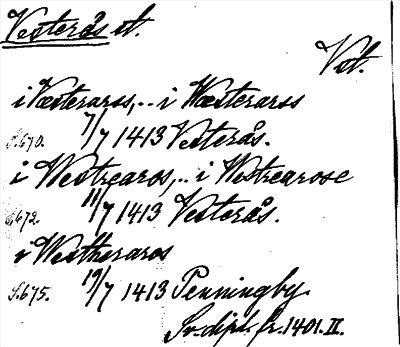 Vesterås st.
Vst.
i Væsterarss,.. i Wæsterarss
S.670. 7/7 1413 Vesterås.
i Westrearos,.. i Westrearose
S.672. 11/7 1413 Vesterås.
i Westheraros
S.675. 19/7 1413 Penningby.
Sv. dipl. fr. 1401. II.